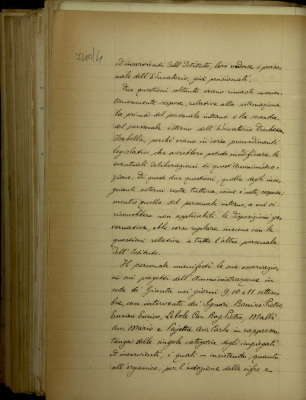 7200/4
ed inservienti dell'Istituto, loro vedove e perso-
nale dell'Educatorio, già pensionati.
Due questioni soltanto erano rimaste momen-
taneamente sospese, relative alla sistemazione
la prima del personale interno e la seconda
del personale esterno dell'Educatorio Duchessa
Isabella, perché erano in corso provvedimenti
legislativi che avrebbero potuto modificare le
eventuali deliberazioni di quest'Amministra-
zione. Di queste due questioni, quella degli inse-
gnanti esterni resta tuttora, come è noto, sospesa,
mentre quella del personale interno, a cui si
riconobbero non applicabili le disposizioni go-
vernative, ebbe corso regolare insieme con le
questioni relative a tutto l'altro personale
dell'Istituto.
Il personale manifestò le sue osservazio-
ni sui progetti dell'Amministrazione in
sede di Giunta nei giorni 9, 10 e 11 settem-
bre, con intervento dei Signori Bonino Pietro,
Enrico, Cav. Rag. Pietro,
Avv. Mario e Avv. Carlo in rappresen-
tanza delle singole categorie degli impiegati
ed inservienti, i quali — insistendo, quanto
all'organico, per l'adozione delle cifre e